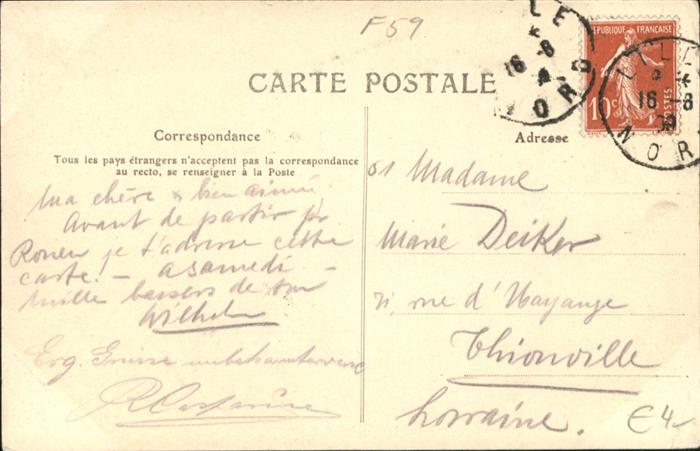 F59
CARTE POSTALE
LILLE
16-8
NORD
REPUBLIQUE FRANÇAISE
10c
POSTES
LILLE
16-8
NORD
Correspondance
Adresse
Tous les pays étrangers n'acceptent pas la correspondance
au recto, se renseigner à la Poste
Ma chère & bien aimée
Avant de partir pr
Rouen je t'adresse cette
carte! - A samedi -
Mille baisers de ton
Wilhelm
Erg. Grüsse unbekannterweise
Madame
Marie Deiker
rue d'Hayange
Thionville
Lorraine.
€4-